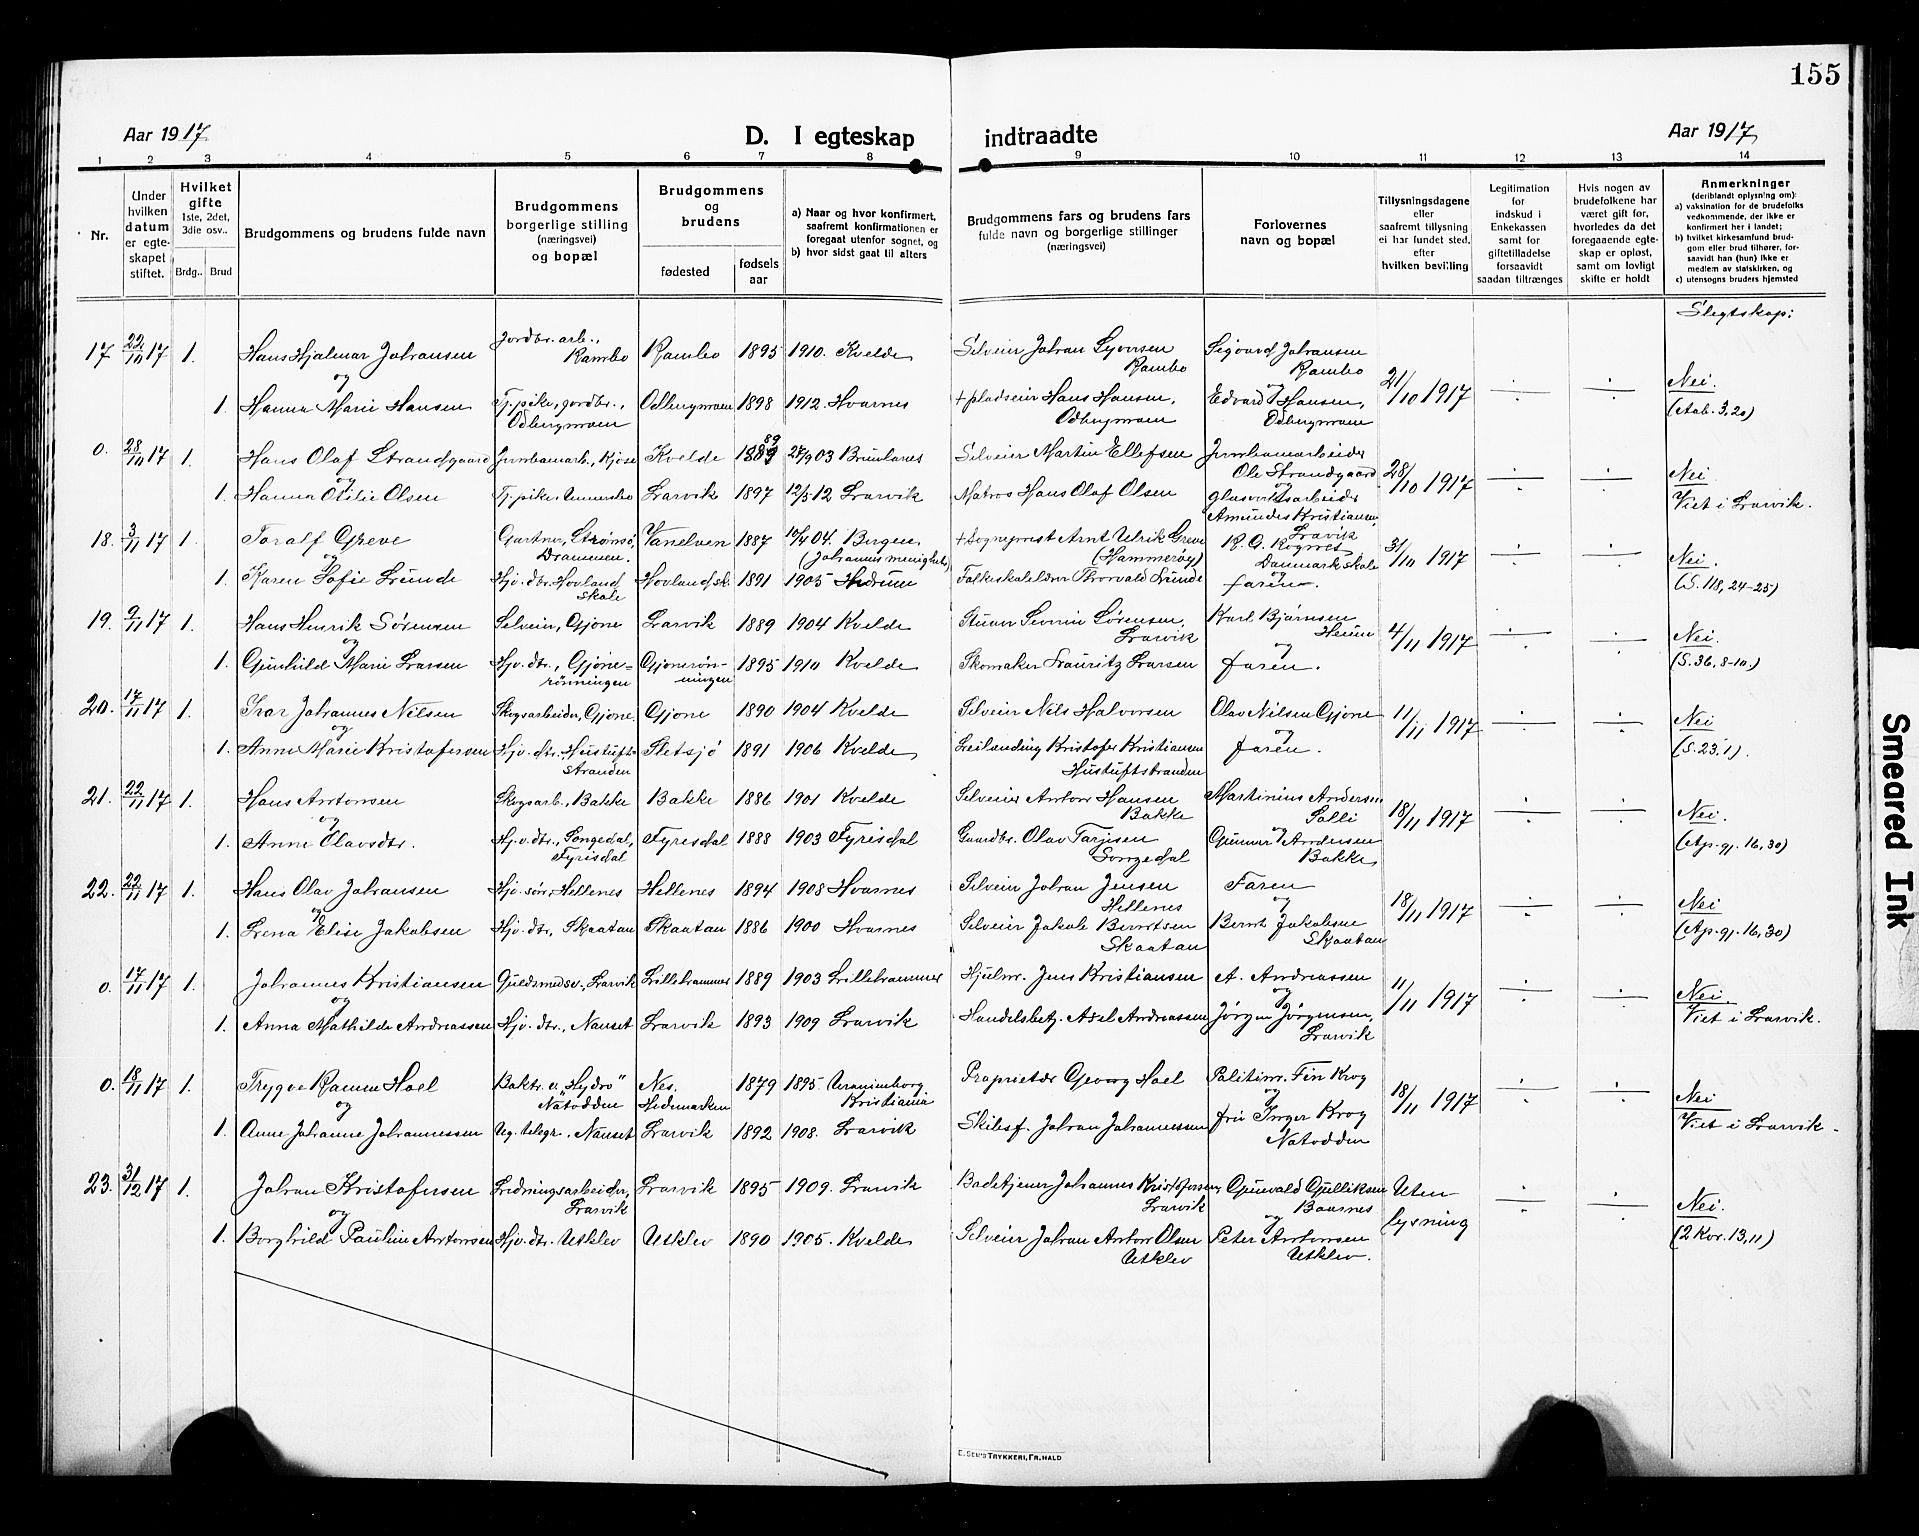 155
Aar 1917
D. I egteskap
indtraadte
Aar 1917
1 2 3 4 5 6 7 8 9 10 11 12 13 14
Nr.
Under hvilken datum er egteskapet stiftet.
Hvilket gifte 1ste, 2det, 3die osv..
Brdg.. Brud
Brudgommens og brudens fulde navn
Brudgommens borgerlige stilling (næringsvei) og bopæl
Brudgommens og brudens
fødested
fødselsaar
a) Naar og hvor konfirmert, saafremt konfirmationen er foregaat utenfor sognet, og
b) hvor sidst gaat til alters
Brudgommens fars og brudens fars fulde navn og borgerlige stillinger (næringsvei)
Forlovernes navn og bopæl
Tillysningsdagene eller saafremt tillysning ei har fundet sted, efter hvilken bevilling
Legitimation for indskud i Enkekassen samt for giftetilladelse forsaavidt saadan tiltrænges
Hvis nogen av brudefolkene har været gift før, hvorledes da det foregaaende egteskap er opløst, samt om lovligt skifte er holdt
Anmerkninger (deriblandt oplysning om):
a) vaksination for de brudefolks vedkommende, der ikke er konfirmert her i landet;
b) hvilket kirkesamfund brudgom eller brud tilhører, forsaavidt han (hun) ikke er medlem av statskirken, og
c) utensogns bruders hjemsted
Slegtskap:
17 22/10 17 1. Hans Hjalmar Johansen Jordbr. arb., Rambo Rambo 1895 1910. Kvelde Selveier Johan Syversen Rambo Sigvard Johansen Rambo 21/10 1917 Nei.
og
1. Hanna Marie Hansen Tj. pike, jordbr., Odbergmoen Odbergmoen 1898 1912. Hvarnes + pladseier Hans Hansen, Odbergmoen Edvard Hansen, Odbergmoen
0. 28/10 17 1. Hans Olaf Strandgaard Jernbanearb., Kjose Kvelde 1889 27/9 03 Brunlanes Selveier Martin Ellefsen Jernbanearbeider Ole Strandgaard 28/10 1917 Nei
og
1. Hanna Otilie Olsen Tj. pike Larvik 1897 12/5 12 Larvik Matros Hans Olaf Olsen glasverksarbeider Amundes Kristiansen, Larvik Viet i Larvik.
18. 3/11 17 1. Toralf Greve Gartner, Strømsø, Drammen. Vanelven 1887 10/4 04. Bergen (Johannes menighet) + sogneprest Arnt Ulrik Greve (Hammerøy) Danmark skole 31/10 1917 Nei.
og
1. Karen Sofie Lunde Hjv. dtr. Hovland skole Hovland sk. 1891 1905 Hedrum Folkeskolelærer Thorvald Lunde faren. (S. 118, 24-25)
19. 9/11 17 1. Hans Henrik Sørensen Selveier, Gjone Larvik 1889 1904 Kvelde Stuer Severin Sørensen, Larvik Karl Bjørnsen Heum 4/11 1917 Nei.
og
1. Gunhild Marie Larsen Hjv. dtr., Gjone-rønningen Gjonerønningen 1895 1910 Kvelde Skomaker Lauritz Larsen faren. (S. 36, 8-10.)
20. 17/11 17 1. Ivar Johannes Nilsen Skogsarbeider, Gjone. Gjone 1890 1904 Kvelde Selveier Nils Halvorsen Olav Nilsen Gjone 11/11 1917 Nei
og
1. Anne Marie Kristofersen Hjv. dtr., Hustuftstranden Sletsjø 1891 1906 Kvelde Leilending Kristofer Kristiansen Hustuftstranden faren. (S. 23, 1).
21. 22/11 17 1. Hans Antonsen Skogsarb., Bakke Bakke 1886 1901 Kvelde Selveier Anton Hansen Bakke Martinius Andersen Solli 18/11 1917 Nei.
og
1. Anne Olavsdtr. Hjv. dtr., Songedal, Fyrisdal Fyrisdal 1888 1903 Fyrisdal Gaardbr. Olav Tarjesen Songedal Gunnar Andersen Bakke (Ap. gj. 16, 30)
22. 22/11 17 1. Hans Olav Johansen Hjv. søn, Hellenes Hellenes 1894 1908 Hvarnes Selveier Johan Jensen Hellenes Faren 18/11 1917 Nei
og
1. Lena Elise Jakobsen Hjv. dtr., Skaatan Skaatan 1886 1900 Hvarnes Selveier Jakob Berntsen Skaatan Bernt Jakobsen Skaatan (Ap. gj. 16, 30)
0. 17/11 17 1. Johannes Kristiansen Guldsmedsv., Larvik Lillehammer 1889 1903 Lillehammer Hjulm. Jens Kristiansen A. Andreassen 11/11 1917 Nei.
og
1. Anna Mathilde Andreassen Hjv. dtr., Nanset Larvik 1893 1909 Larvik Handelsbetj. Axel Andreassen Jørgen Jørgensen, Larvik Viet i Larvik.
0. 18/11 17 1. Trygve Ramm Hoel "Hydro" Notodden Nes. Hedemarken 1879 1895. Uranienborg Kristiania Proprietær Georg Hoel Politim. Fin Krog 18/11 1917 Nei
og
1. Anne Johanne Johannessen telegr., Nanset Larvik 1892 1908. Larvik Skibsf. Johan Johannessen fru Inger Krog Notodden Viet i Larvik.
23. 31/12 17 1. Johan Kristofersen Ledningsarbeider, Larvik Larvik 1895 1909. Larvik Badetjener Johannes Kristofersen, Larvik Gunvald Gulliksen Baasnes Uten lysning Nei.
og
1. Borghild Pauline Antonsen Hjv. dtr. Utklev Utklev 1890 1905. Kvelde Selveier Johan Anton Olsen Utklev Peter Antonsen Utklev. (2 Kor. 13, 11)
E. SEM'S TRYKKERI, FR.HALD
Smeared Ink